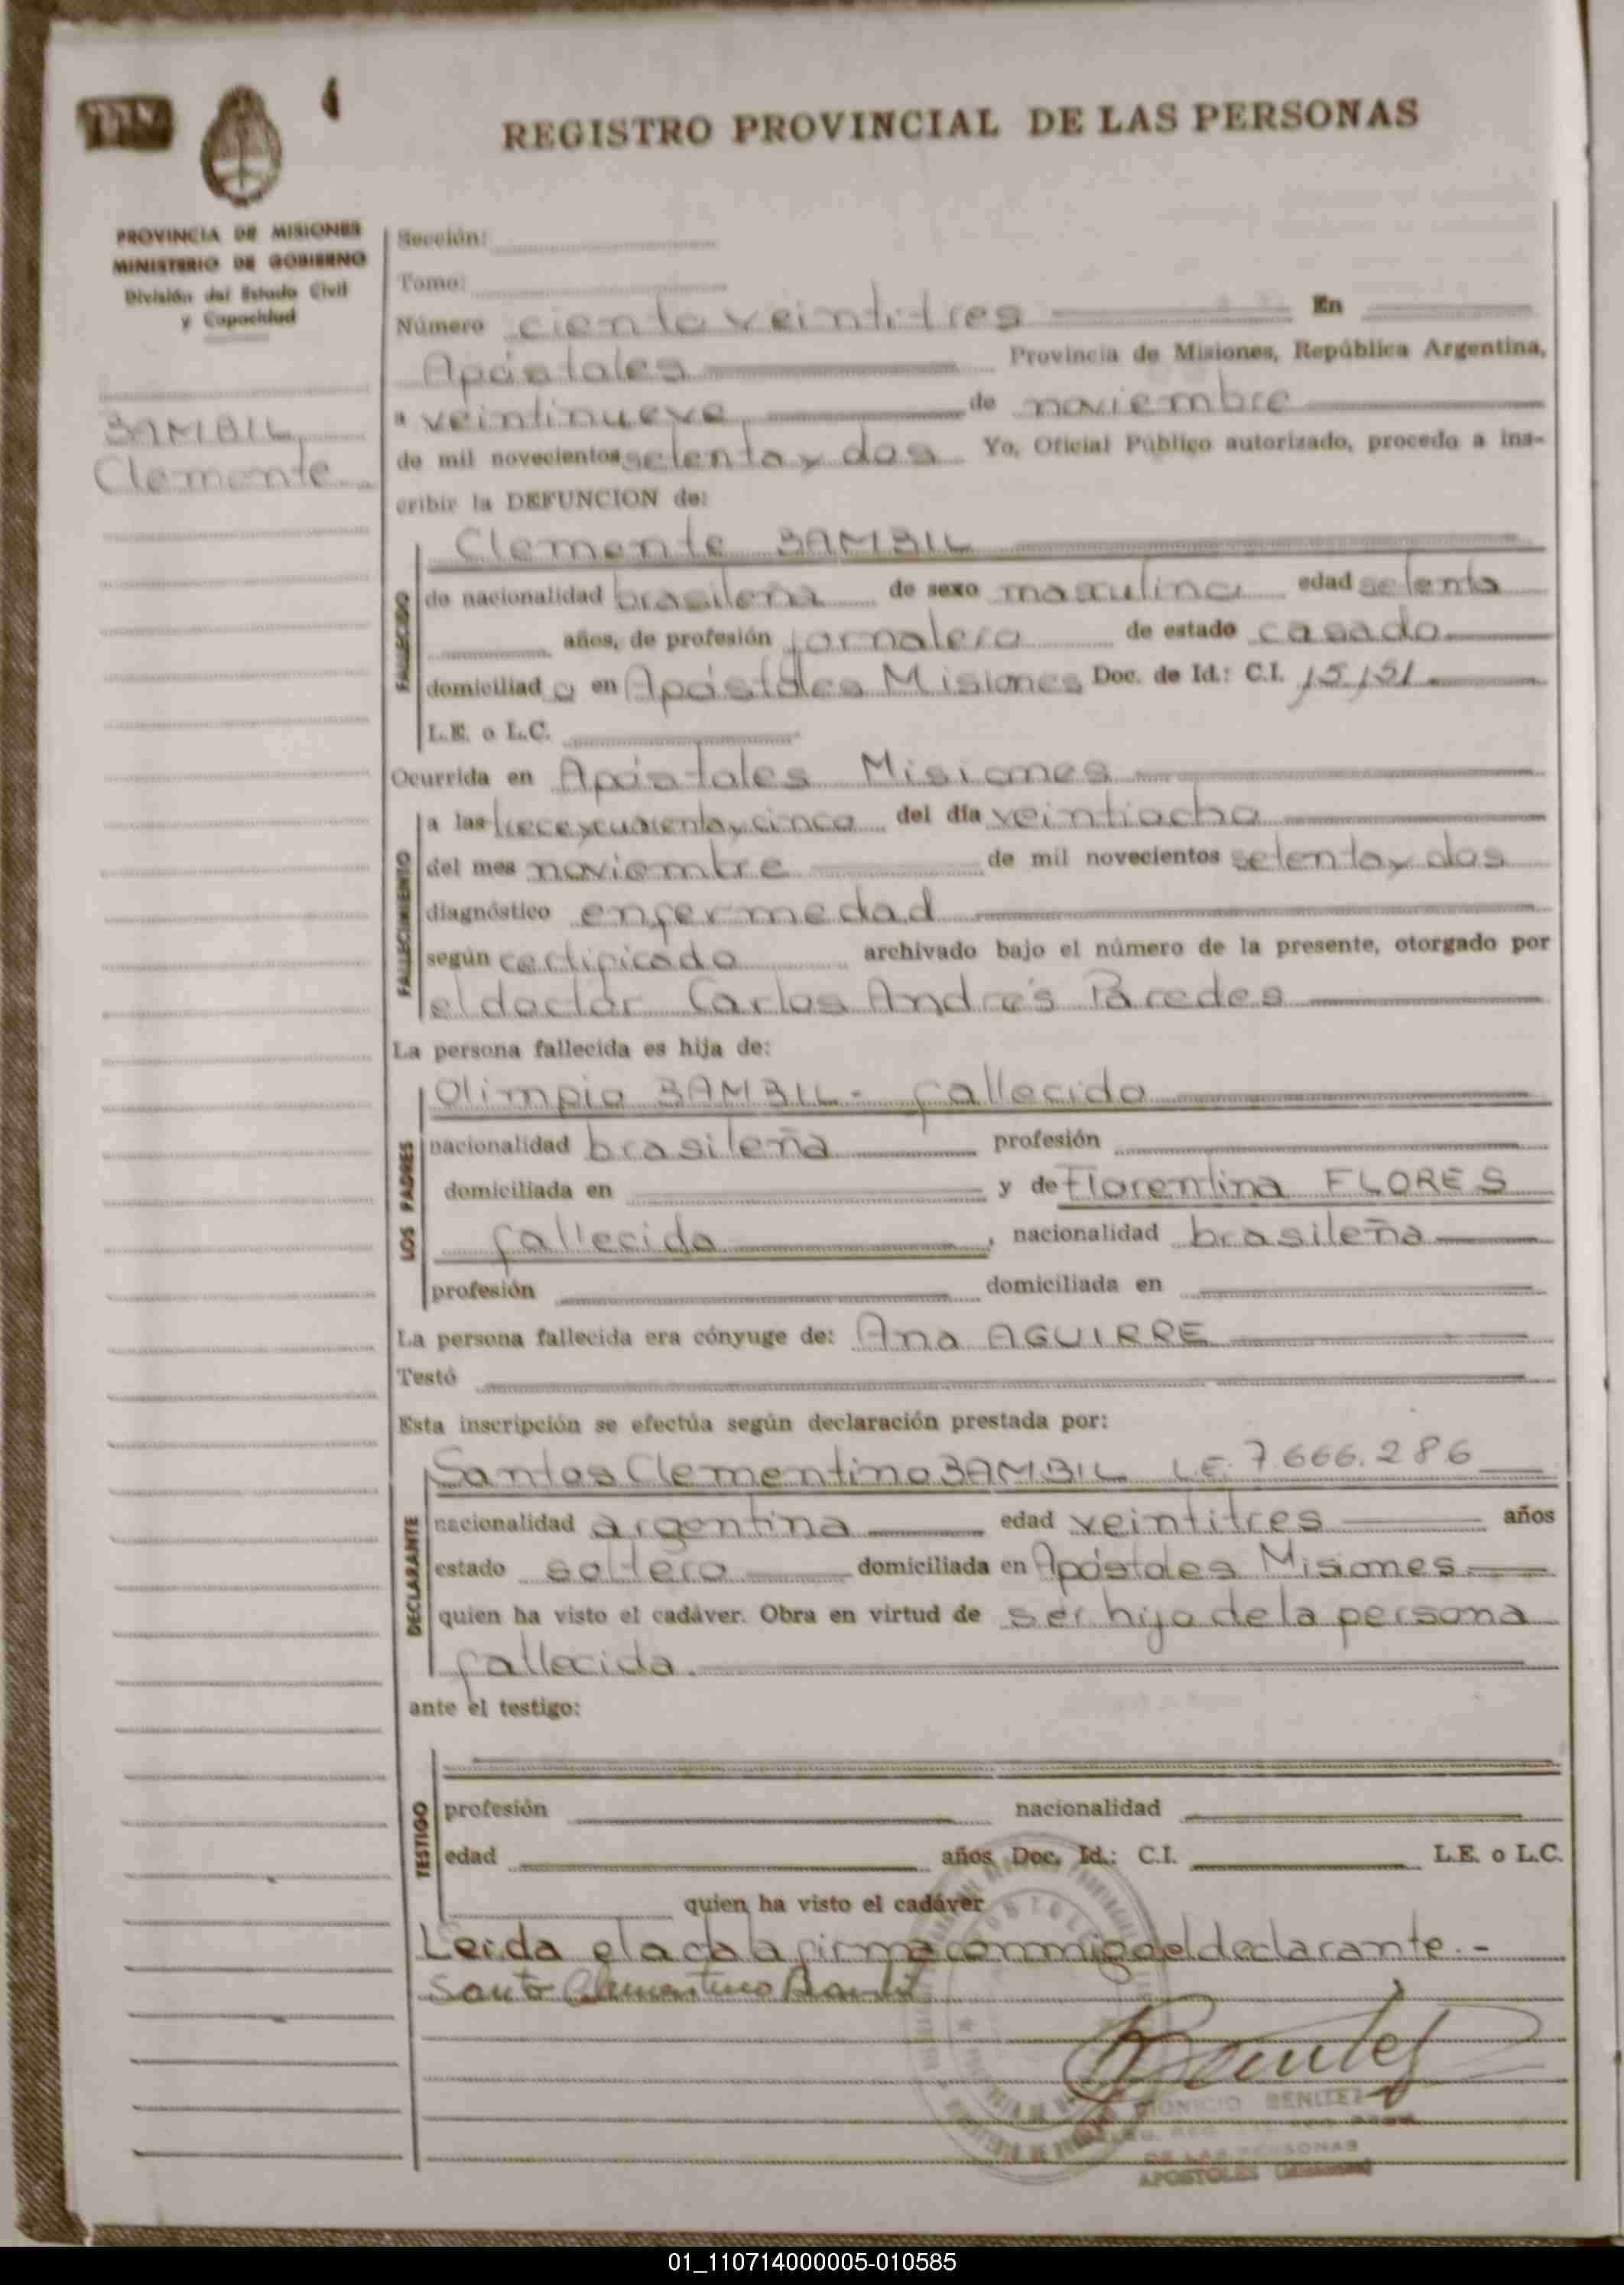 REGISTRO PROVINCIAL DE LAS PERSONAS
PROVINCIA DE MISIONES
MINISTERIO DE GOBIERNO
División del Estado Civil
y Capacidad
BAMBIL
Clemente
Sección:
Tomo:
Número ciento veintitres En
Apóstoles Provincia de Misiones, República Argentina,
a veintinueve de noviembre
de mil novecientos setenta y dos Yo, Oficial Público autorizado, procedo a ins-
cribir la DEFUNCION de:
Clemente BAMBIL
FALLECIDO
de nacionalidad brasileña de sexo masculino edad setenta
años, de profesión jornalero de estado casado
domiciliad o en Apóstoles Misiones Doc. de Id.: C.I.
L.E. o L.C.
Ocurrida en Apóstoles Misiones
FALLECIMIENTO
a las trece y cuarenta y cinco del día veintiocho
del mes noviembre de mil novecientos setenta y dos
diagnóstico enfermedad
según certificado archivado bajo el número de la presente, otorgado por
el doctor Carlos Andrés Paredes
La persona fallecida es hija de:
LOS PADRES
Olimpio BAMBIL - fallecido
nacionalidad brasileña profesión
domiciliada en y de Florentina FLORES
fallecida , nacionalidad brasileña
profesión domiciliada en
La persona fallecida era cónyuge de: Ana AGUIRRE
Testó
Esta inscripción se efectúa según declaración prestada por:
DECLARANTE
Santos Clementino BAMBIL L.E. 7.666.286
nacionalidad argentina edad veintitres años
estado soltero domiciliada en Apóstoles Misiones
quien ha visto el cadáver. Obra en virtud de ser hijo de la persona
fallecida.
ante el testigo:
TESTIGO
profesión nacionalidad
edad años Doc. Id.: C.I. L.E. o L.C.
quien ha visto el cadáver
Leida el acta a firma conmigo el declarante.-
Santo Clementino Bambil
BENITEZ
DE LAS PERSONAS
APOSTOLES (Misiones)
01_110714000005-010585